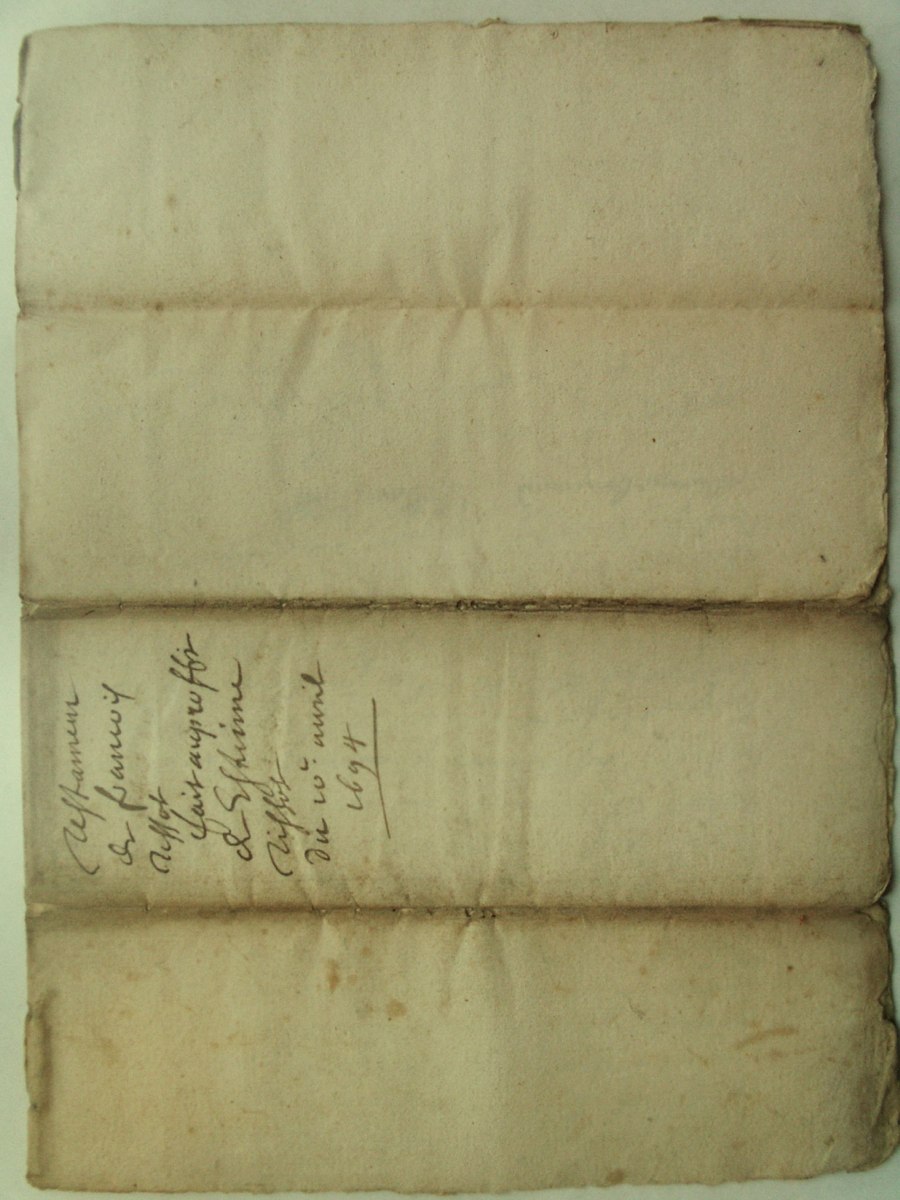 Testament
de francois
Tissot
fait au proffit
de Esthienne
Tissot
du 10e auril
1694